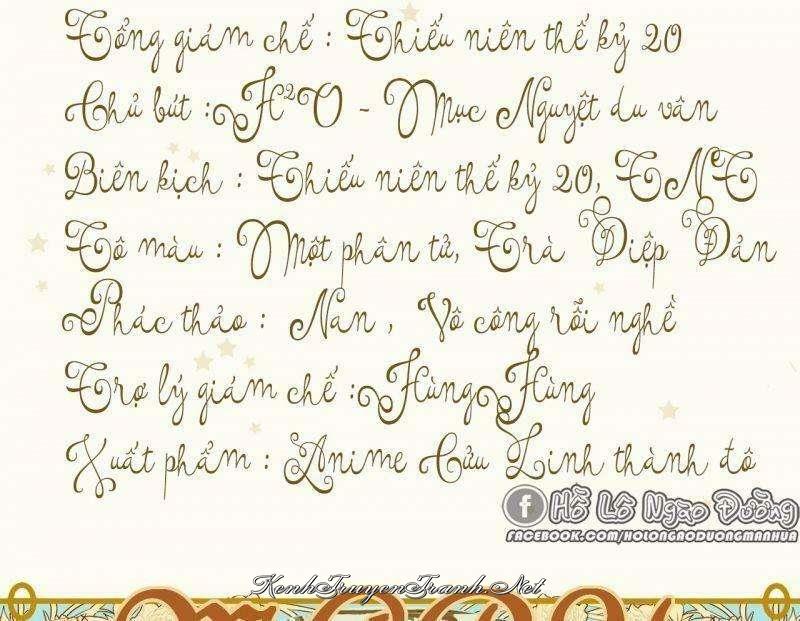 Tổng giám chế : Thiếu niên thế kỷ 20
Chủ bút : H²O - Mục Nguyệt du vân
Biên kịch : Thiếu niên thế kỷ 20, TNT
Tô màu : Một phân tử, Trà Diệp Đản
Phác thảo : Nan , Vô công rỗi nghề
Trợ lý giám chế : Hùng Hùng
Xuất phẩm : Anime Cửu Linh thành đô
f Hồ Lô Ngào Đường
FACEBOOK.COM/HOLONGAODUONGMANHUA
KenhTruyenTranh.Net